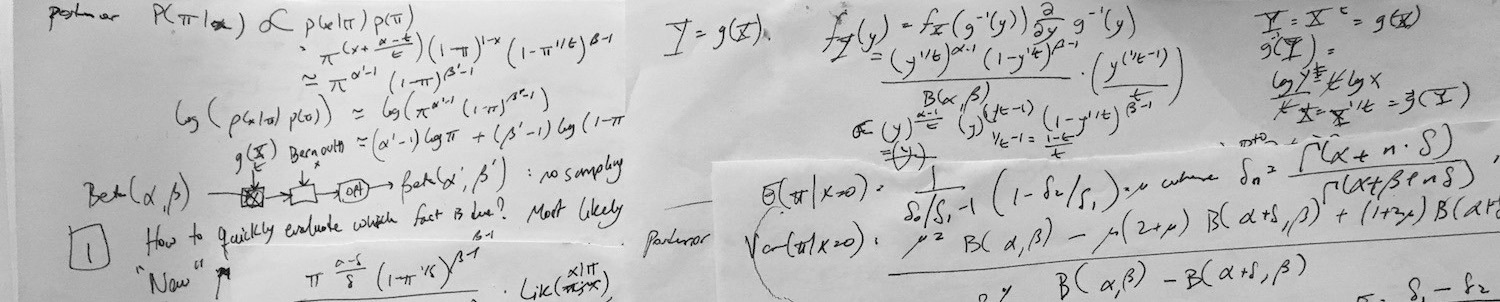 posterior P(π|x) ∝ p(x|π) p(π)
= π^(x + (α-t)/t) (1-π)^(1-x) (1-π^(1/t))^(β-1)
≈ π^(α'-1) (1-π)^(β'-1)
log( p(x|π) p(π) ) ≈ log(π^(α'-1) (1-π)^(β'-1))
≈ (α'-1) log π + (β'-1) log (1-π
g(X) Bernoulli
t x
Beta(α,β) → → → Beta(α', β') : no sampling
1 How to quickly evaluate which fact is due? Most likely
"Now"
π^((α-δ)/δ) (1-π^(1/δ))^(β-1) . Lik(x|π),
Y = g(X). f_Y(y) = f_X(g^-1(y)) ∂/∂y g^-1(y)
= (y^(1/t))^(α-1) (1-y^(1/t))^(β-1) / B(α,β) · (y^(1/t-1) / t)
∝ (y)^((α-1)/t) (y)^(1/t-1) (1-y^(1/t))^(β-1)
1/t-1 = (1-t)/t
= (y)
Y = X^t = g(X)
g^-1(Y) =
log Y = t log x
X = Y^(1/t) = g^-1(Y)
E(π|x=0) = 1/(δ0/δ1-1) (1-δ2/δ1) = μ where δn = Γ(α + n·δ) / Γ(α+β+nδ)
Posterior Var(π|x=0) = μ² B(α,β) - μ(2+μ) B(α+δ,β) + (1+2μ) B(α+
B(α,β) - B(α+δ,β)
δ1 - δ2